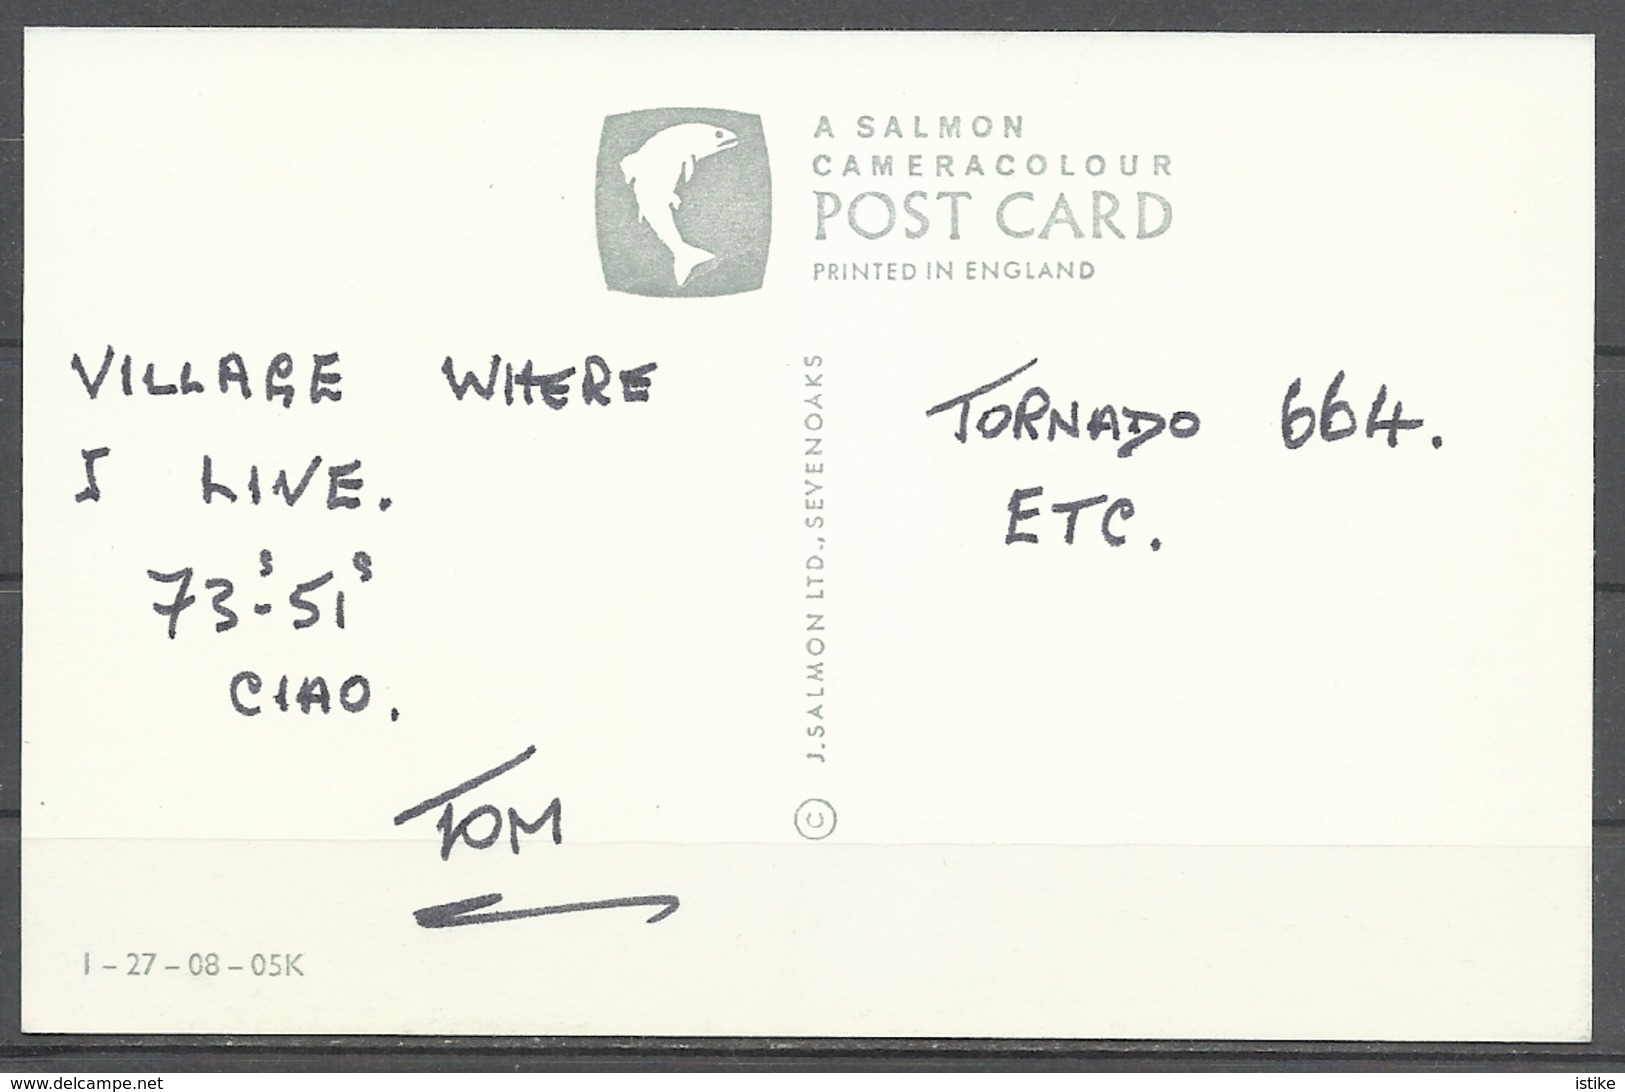 A SALMON
CAMERACOLOUR
POST CARD
PRINTED IN ENGLAND
VILLAGE WHERE
I LIVE.
73's-51's
CIAO.
TOM
TORNADO 664.
ETC.
© J. SALMON LTD., SEVENOAKS
1-27-08-05K
www.delcampe.net
istike